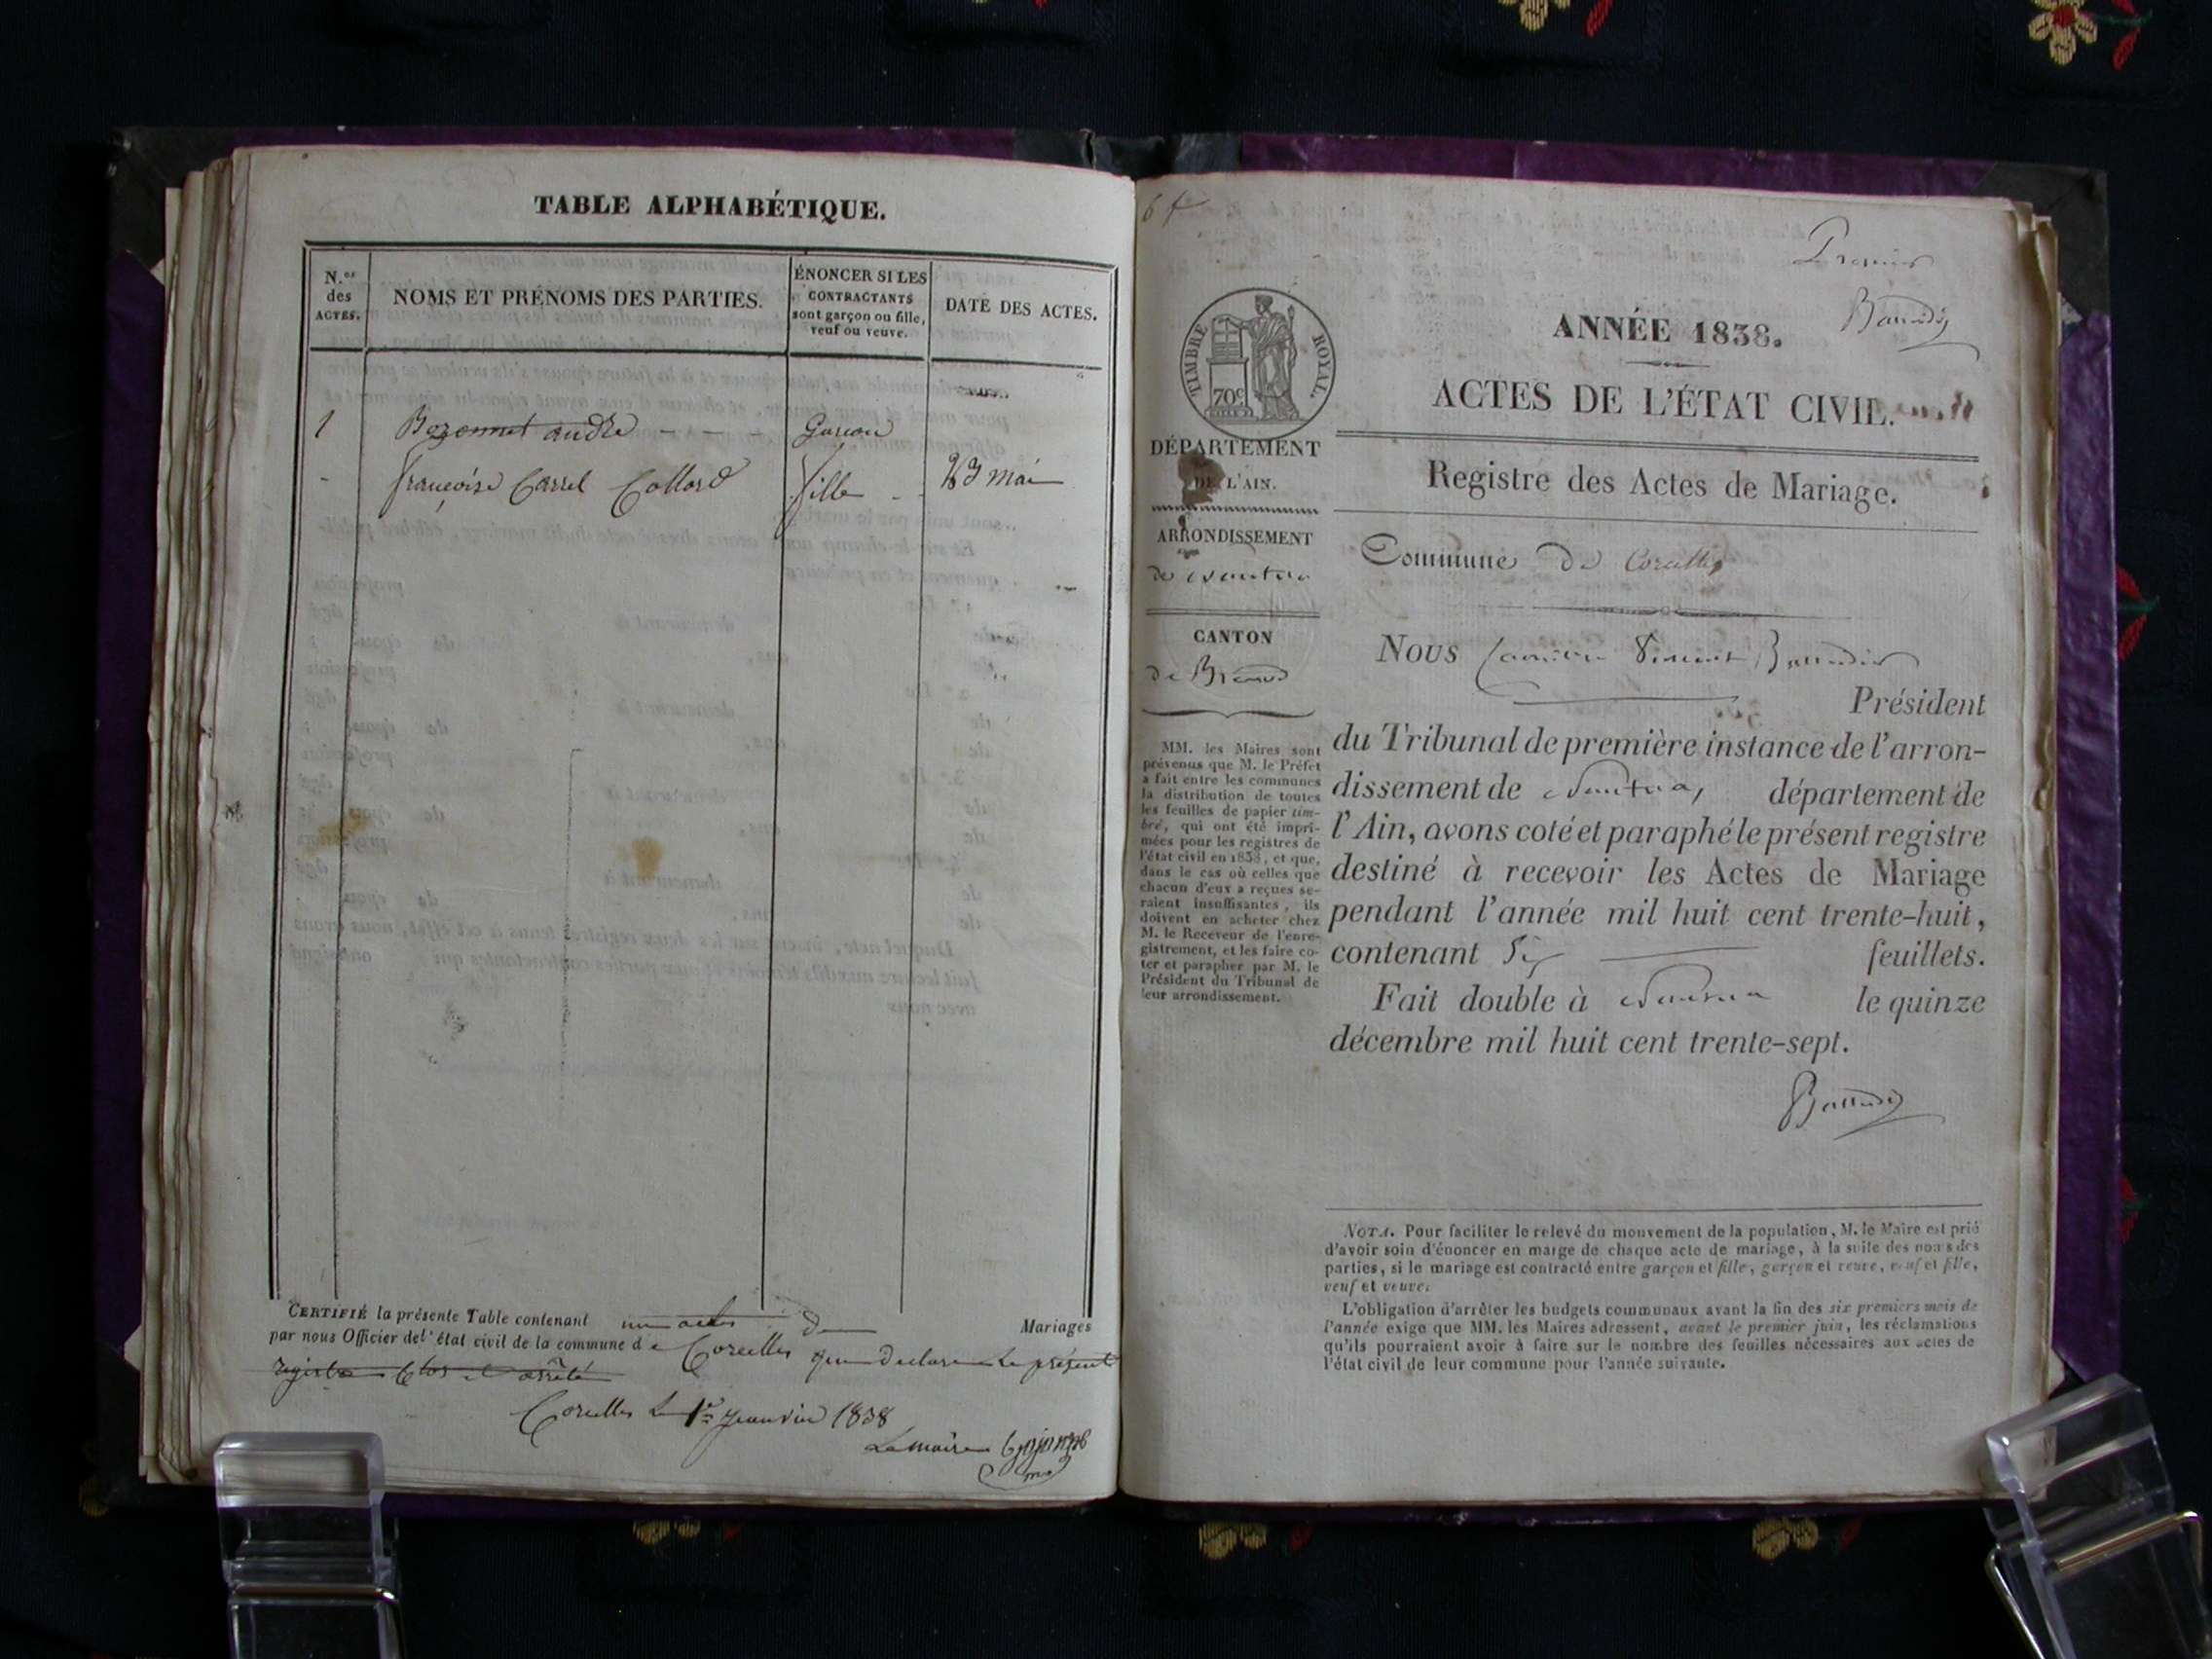 TABLE ALPHABÉTIQUE.
N.os des ACTES.
NOMS ET PRÉNOMS DES PARTIES.
ÉNONCER SI LES
CONTRACTANTS
sont garçon ou fille,
veuf ou veuve.
DATE DES ACTES.
1 Bozonnet andré - - - Garcon
- françoise Carrel Collard fille - - 23 mai
CERTIFIÉ la présente Table contenant un actes de Mariages
par nous Officier de l'état civil de la commune de Corcelles que declare le présent
registre Clos et arrêté
Corcelles le 1er Janvier 1838
Le maire
Premier
ANNÉE 1838.
ACTES DE L'ÉTAT CIVIL.
Registre des Actes de Mariage.
Commune de Corcelles
TIMBRE ROYAL.
70c
DÉPARTEMENT
DE L'AIN.
ARRONDISSEMENT
de Nantua
CANTON
de Brenod
MM. les Maires sont
prévenus que M. le Préfet
a fait entre les communes
la distribution de toutes
les feuilles de papier tim-
bré, qui ont été impri-
mées pour les registres de
l'état civil en 1838, et que,
dans le cas où celles que
chacun d'eux a reçues se-
raient insuffisantes, ils
doivent en acheter chez
M. le Receveur de l'enre-
gistrement, et les faire co-
ter et parapher par M. le
Président du Tribunal de
leur arrondissement.
Nous Vincent Baudin
Président
du Tribunal de première instance de l'arron-
dissement de Nantua, département de
l'Ain, avons coté et paraphé le présent registre
destiné à recevoir les Actes de Mariage
pendant l'année mil huit cent trente-huit,
contenant Six feuillets.
Fait double à Nantua le quinze
décembre mil huit cent trente-sept.
NOTA. Pour faciliter le relevé du mouvement de la population, M. le Maire est prié
d'avoir soin d'énoncer en marge de chaque acte de mariage, à la suite des noms des
parties, si le mariage est contracté entre garçon et fille, garçon et veuve, veuf et fille,
veuf et veuve.
L'obligation d'arrêter les budgets communaux avant la fin des six premiers mois de
l'année exige que MM. les Maires adressent, avant le premier juin, les réclamations
qu'ils pourraient avoir à faire sur le nombre des feuilles nécessaires aux actes de
l'état civil de leur commune pour l'année suivante.